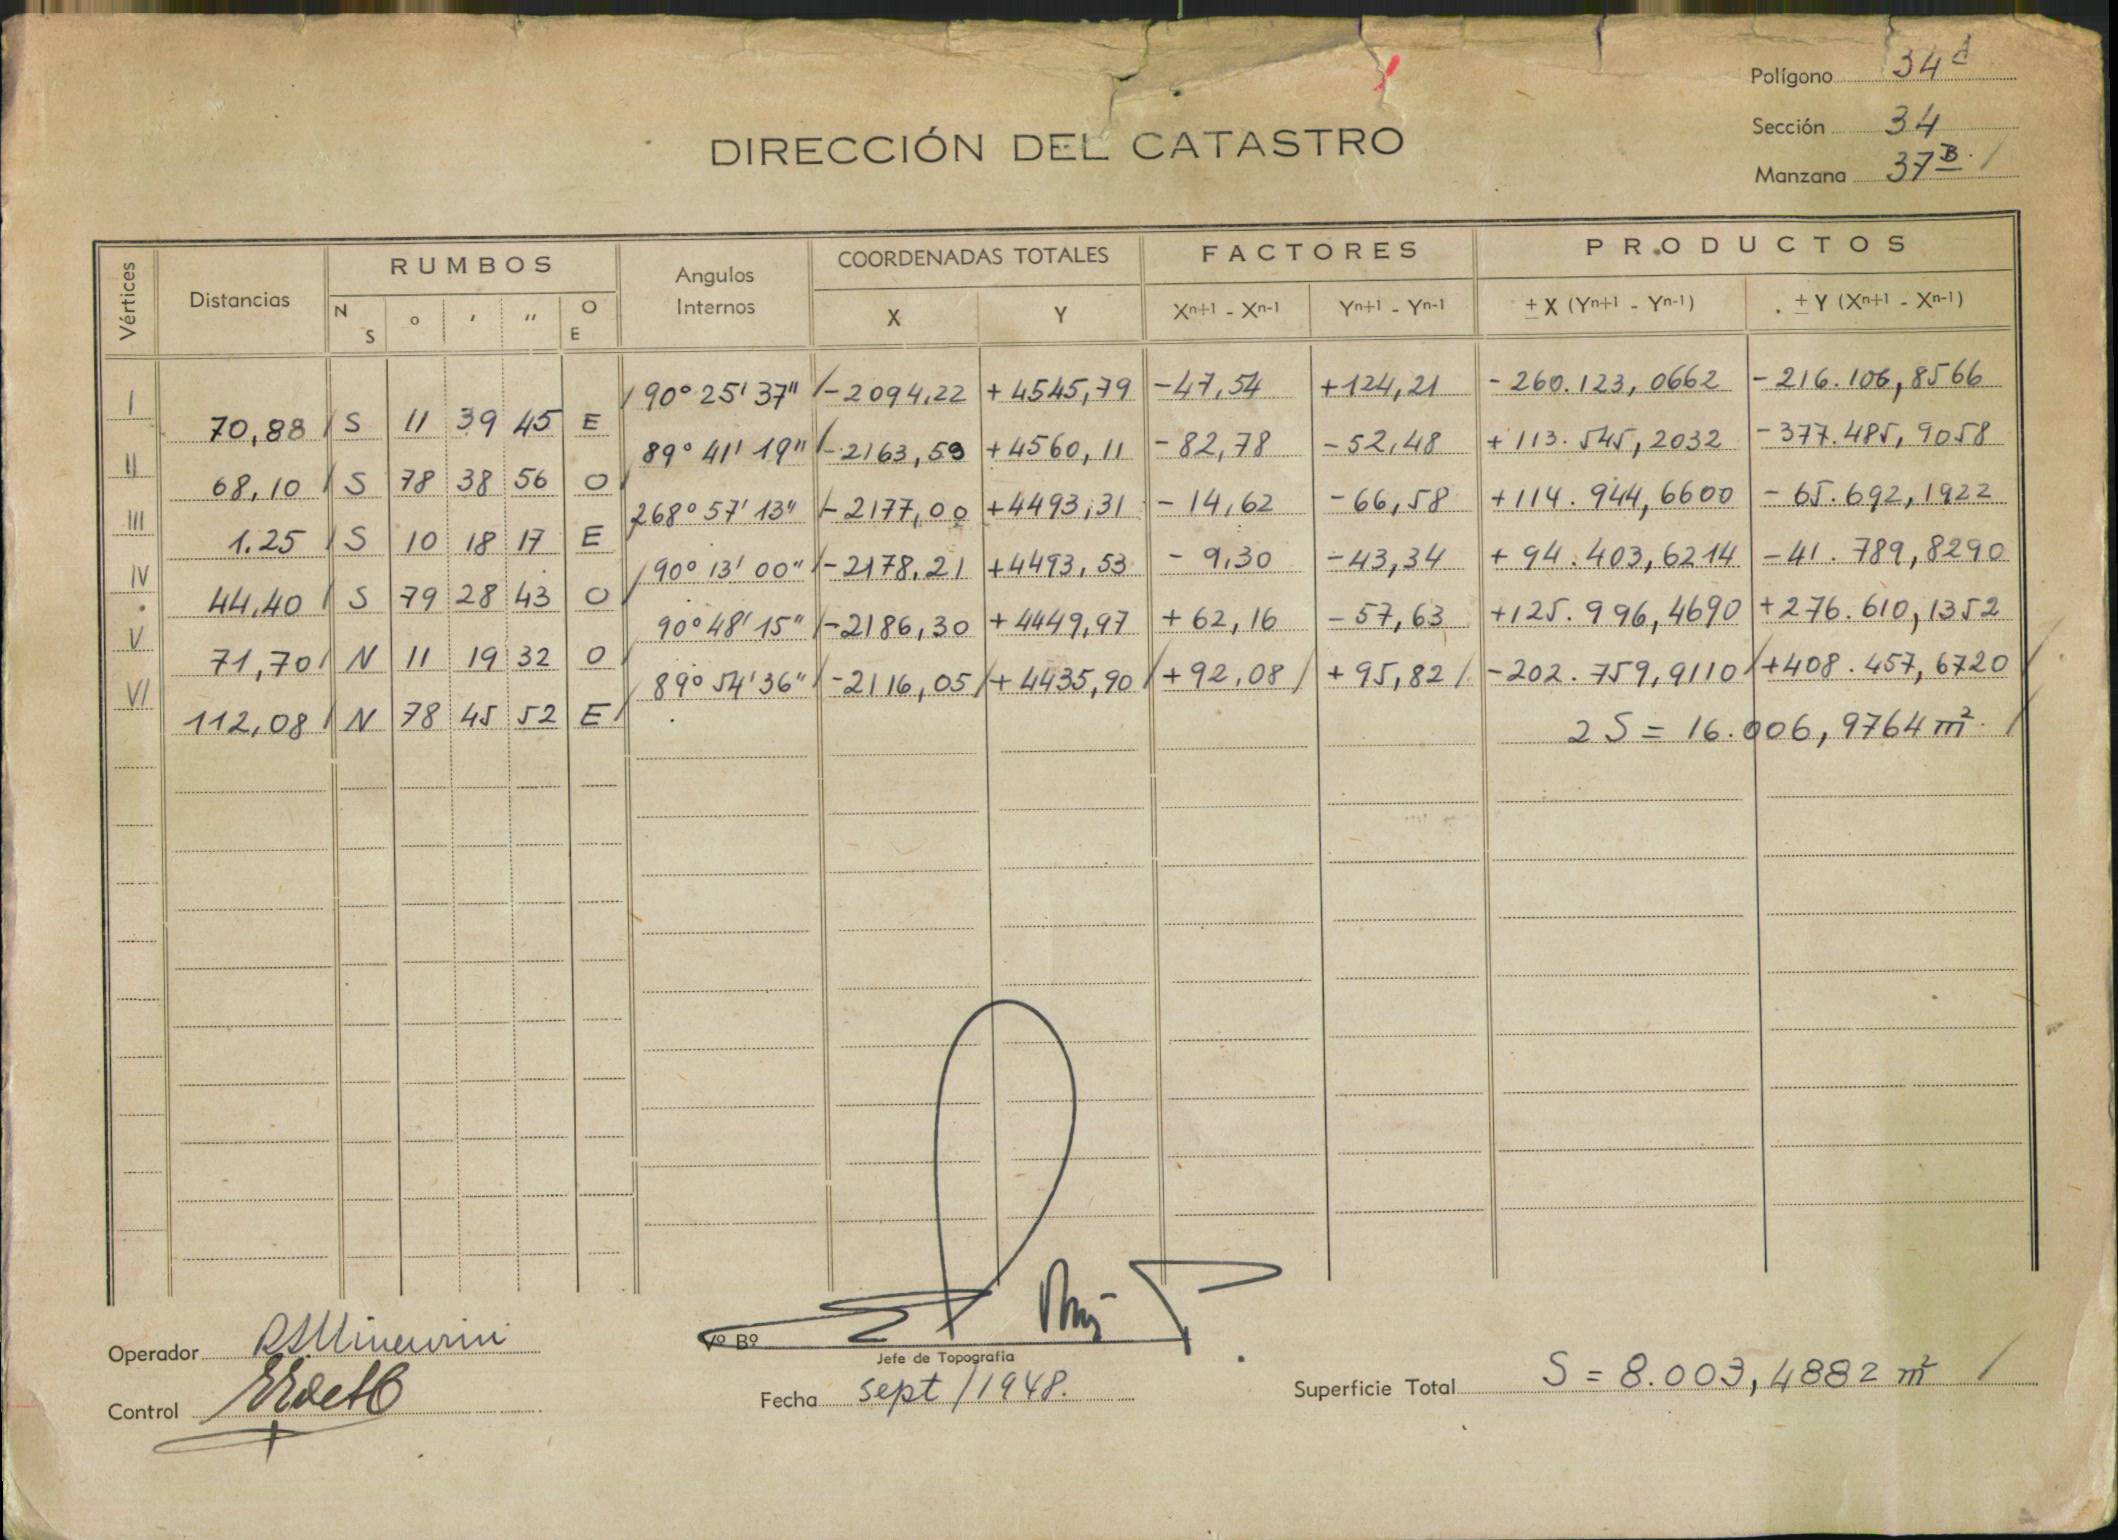 Polígono 34d
Sección 34
Manzana 37B
DIRECCIÓN DEL CATASTRO
Vértices Distancias RUMBOS Angulos Internos COORDENADAS TOTALES FACTORES PRODUCTOS
N S ° ′ ″ O E X Y Xn+1 - Xn-1 Yn+1 - Yn-1 ± X (Yn+1 - Yn-1) ± Y (Xn+1 - Xn-1)
I 90° 25' 37" -2094,22 +4545,79 -47,54 +124,21 -260.123,0662 -216.106,8566
70,88 S 11 39 45 E
II 89° 41' 19" -2163,59 +4560,11 -82,78 -52,48 +113.545,2032 -377.485,9058
68,10 S 78 38 56 O
III 268° 57' 13" -2177,00 +4493,31 -14,62 -66,58 +114.944,6600 -65.692,1922
1.25 S 10 18 17 E
IV 90° 13' 00" -2178,21 +4493,53 -9,30 -43,34 +94.403,6214 -41.789,8290
44,40 S 79 28 43 O
V 90° 48' 15" -2186,30 +4449,97 +62,16 -57,63 +125.996,4690 +276.610,1352
71,70 N 11 19 32 O
VI 89° 54' 36" -2116,05 +4435,90 +92,08 +95,82 -202.759,9110 +408.457,6720
112,08 N 78 45 52 E
2 S = 16.006,9764 m²
Operador
Vº Bº
Jefe de Topografia
Control
Fecha sept/1948.
Superficie Total S = 8.003,4882 m²